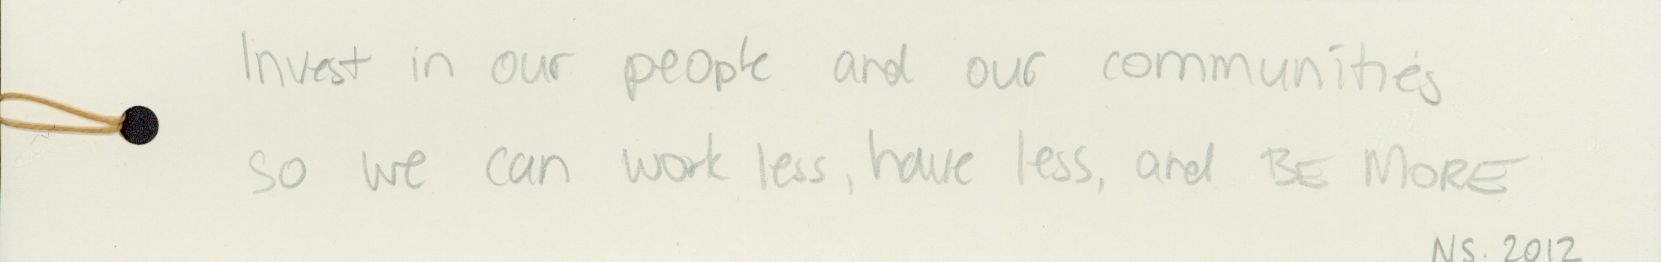 Invest in our people and our communities
so we can work less, have less, and BE MORE
NS. 2012